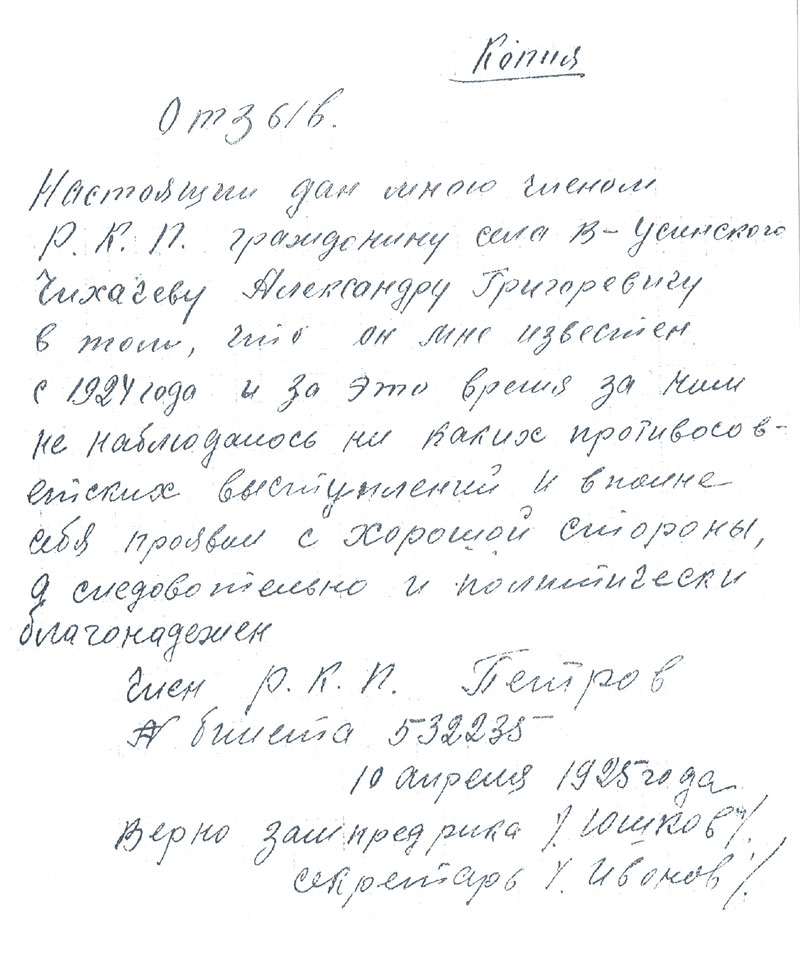 Копия
Отзыв.
Настоящий дан мною членом
Р. К. П. гражданину села В-Усинского
Чихачеву Александру Григоревичу
в том, что он мне известен
с 1924 года и за это время за ним
не наблюдалось ни каких противосов-
етских выступлений и вполне
себя проявил с хорошой стороны,
а следовательно и политически
благонадежен
Член Р. К. П. Петров
№ билета 532235
10 апреля 1925 года
Верно зампредрика /. Юшков /.
секретарь /. Иванов /.